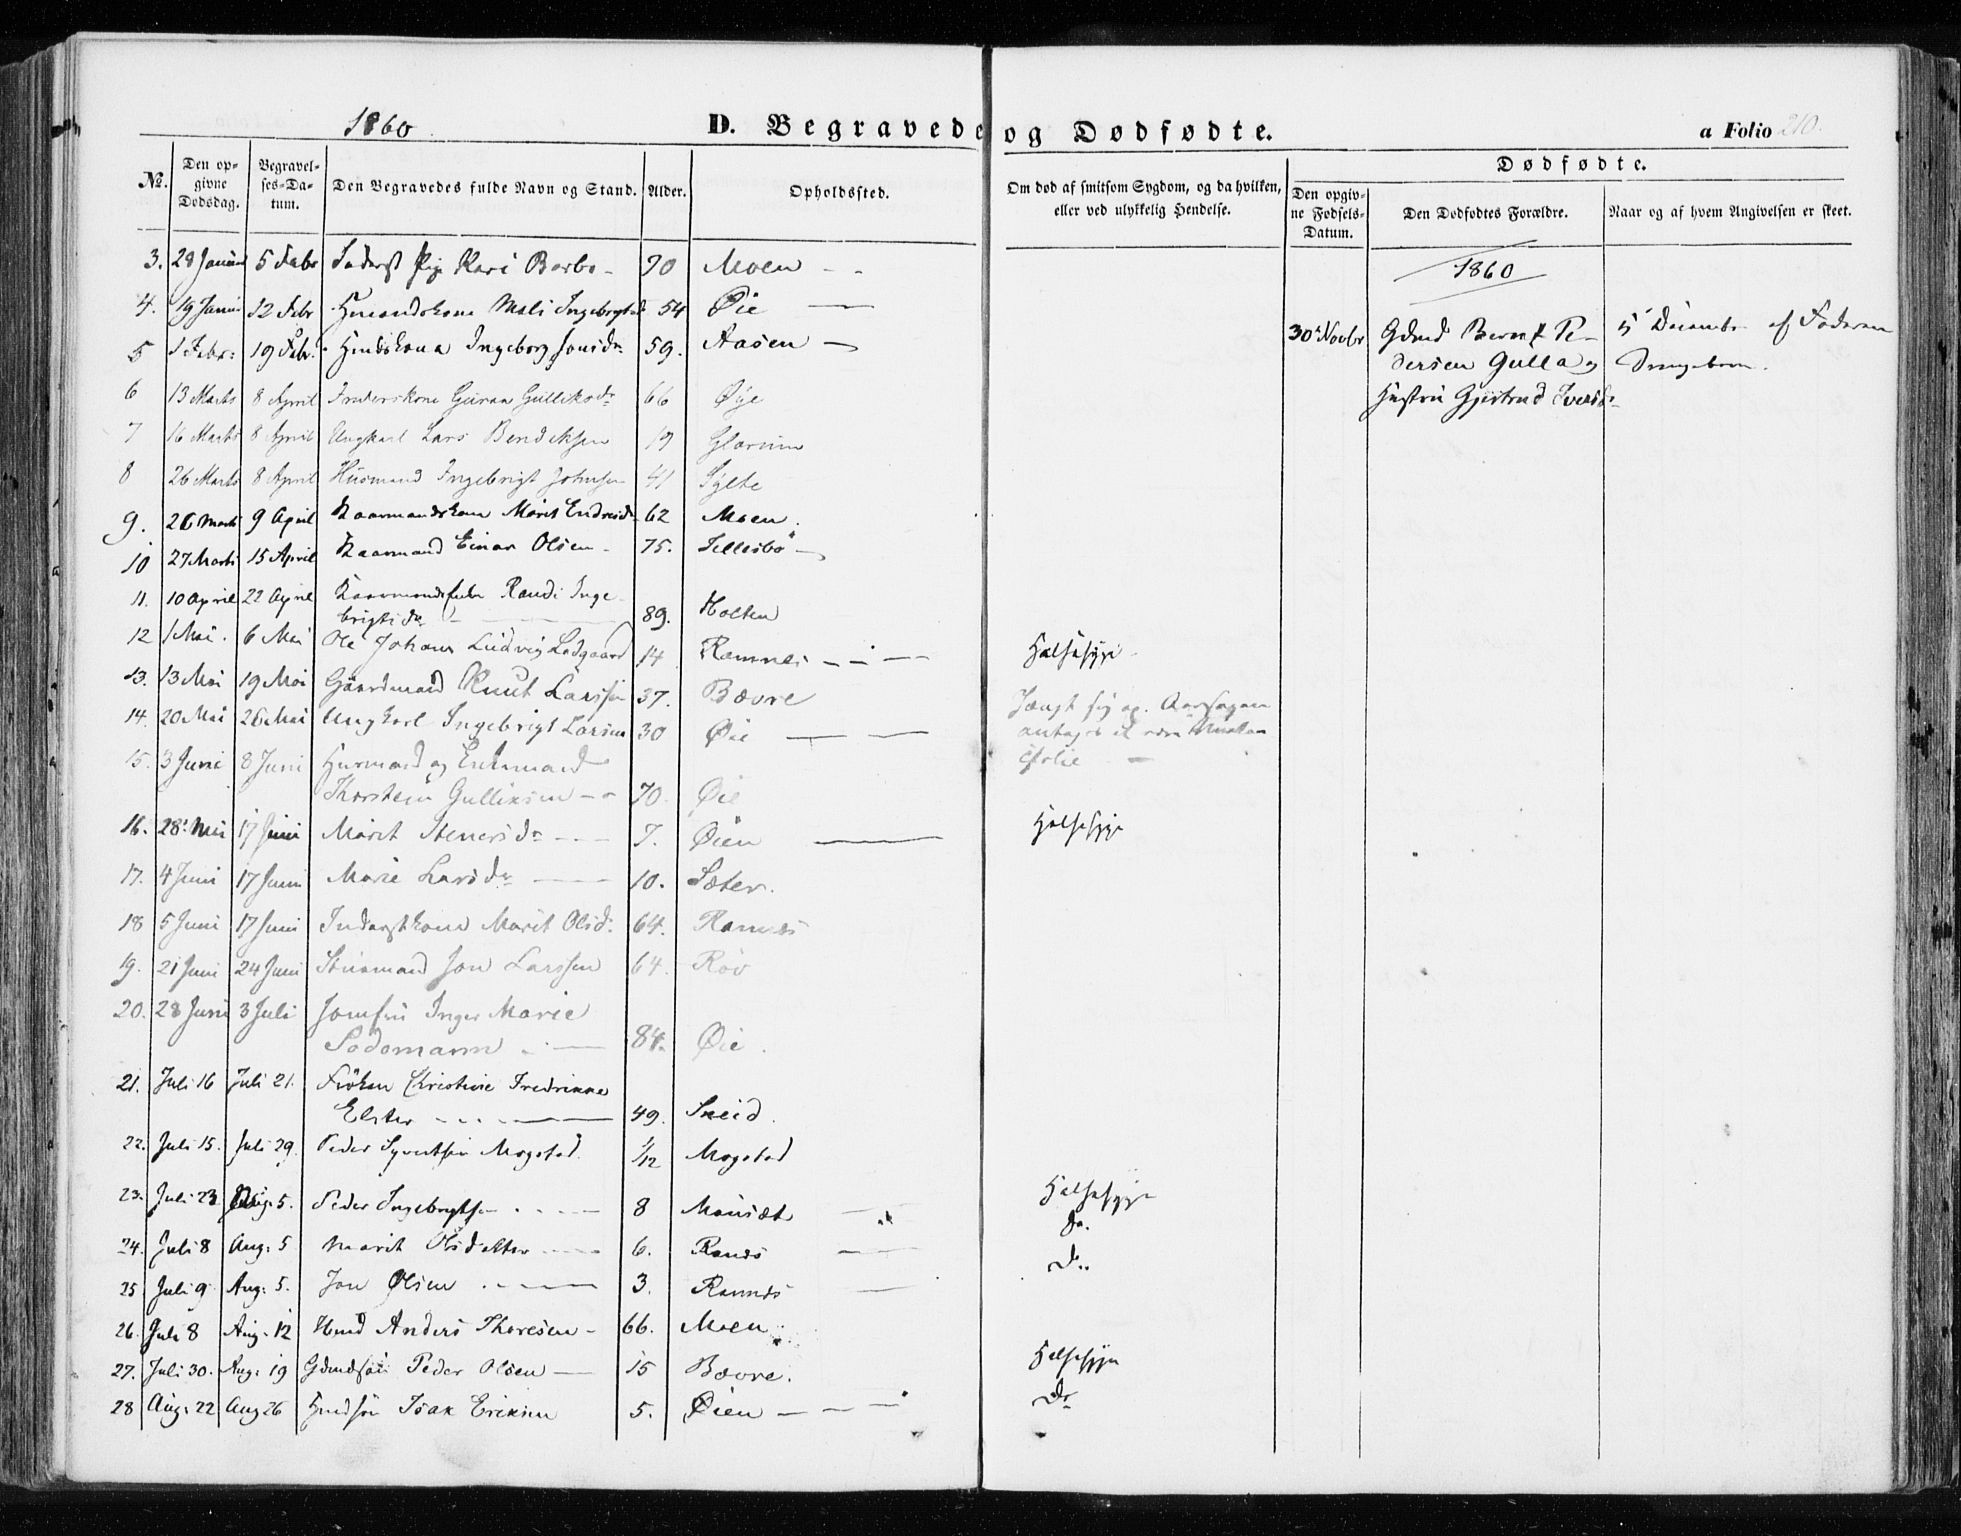 1860
D. Begravede og Dødfødte.
a Folio 210.
No.
Den opgivne Dødsdag.
Begravelses-Datum.
Den Begravedes fulde Navn og Stand.
Alder.
Opholdssted.
Om død af smitsom Sygdom, og da hvilken, eller ved ulykkelig Hendelse.
Dødfødte.
Den opgivne Fødsels-Datum.
Den Dødfødtes Forældre.
Naar og af hvem Angivelsen er skeet.
3. 28 Januar 5 Febr Inderst Pige Kari Barbo - 70 Moen
4. 19 Januar 12 Febr Husmandskone Mali Ingebrigtsd 54 Øie
5 1 Febr: 19 Febr. Hmdskone Ingeborg Jonsdr 59. Aasen
6 13 Marts 8 April Inderstkone Guran Gulliksdr 66 Øye
7 16 Marts 8 April Ungkarl Lars Bendiksen 19 Glærum
8 26 Marts 8 April Husmand Ingebrigt Johnsen 41 Sylte
9. 26 Marts 9 April Kaarmandskone Marit Endresdr 62 Moen.
10 27 Marts 15 April Kaarmand Einar Olsen - 75. Tellesbø
11. 10 April 22 April Kaarmandsenke Randi Inge-
brigtsdr 89. Holten
12 1 Mai. 6 Mai Ole Johan Ludvig Lodgaard 14 Ramnes Halssyge
13. 13 Mai 19 Mai Gaardmand Knut Larssen 37. Bævre Hængt sig op. Aarsagen
14. 20 Mai 26 Mai Ungkarl Ingebrigt Larsen 30 Øie antages at være Melan
15. 3 Juni 8 Juni Husmand og Enkemand cholie
Thorstein Gulliksen 70. Øie
16. 28 Mai 17 Juni Marit Stenersdr 7. Øien Halssyge
17. 4 Juni 17 Juni Marie Larsdr 10. Sæter.
18 5 Juni 17 Juni Inderstkone Marit Olsdr. 64. Ramnes
19. 21 Juni 24 Juni Husmand Jon Larssen 64. Røv
20. 28 Juni 3 Juli Jomfru Inger Marie
Sodemann 84. Øie.
21. Juli 16 Juli 21. Frøken Christine Fredrikke
Elster 49. Sneid.
22. Juli 15. Juli 29. Peder Sywertsen Mogstad 1/12 Mogstad
23. Juli 23 Aug. 5. Peder Ingebrigtsen 8 Mausæt Halssyge
24. Juli 8 Aug: 5 Marit Olsdatter 6. Ranes Do.
25 Juli 9 Aug: 5. Jon Olsen 3. Ramnes Do.
26. Juli 8 Aug. 12 Hmd Anders Thoresen - 66. Moen
27. Juli 30. Aug: 19 Gdmdsøn Peder Olsen 15 Bævre. Halssyge
28 Aug: 22 Aug 26 Hmdsøn Isak Eriksen 5. Øien Do
1860
30 Novbr Gdmd Bernt Pe- 5 Decembr af Faderen
dersen Gulla og
Hustru Gjertrud Iversdr